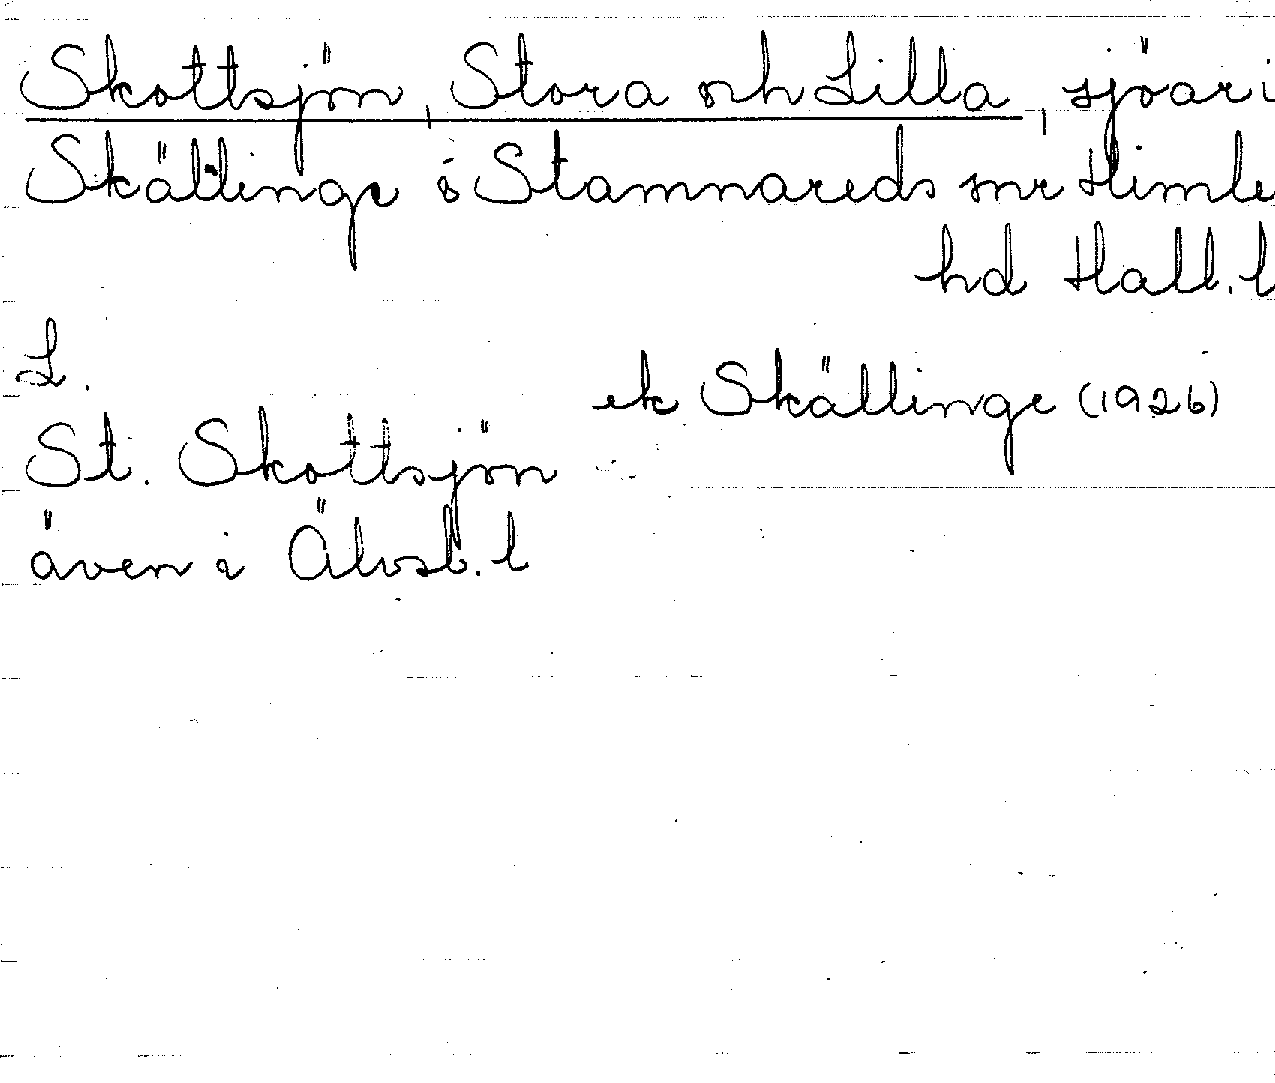 Skottsjön, Stora och Lilla, sjöar i
Skällinge o Stamnareds snr Himle
hd Hall. l
L.
ek Skällinge (1926)
St. Skottsjön
även i Älvsb. l